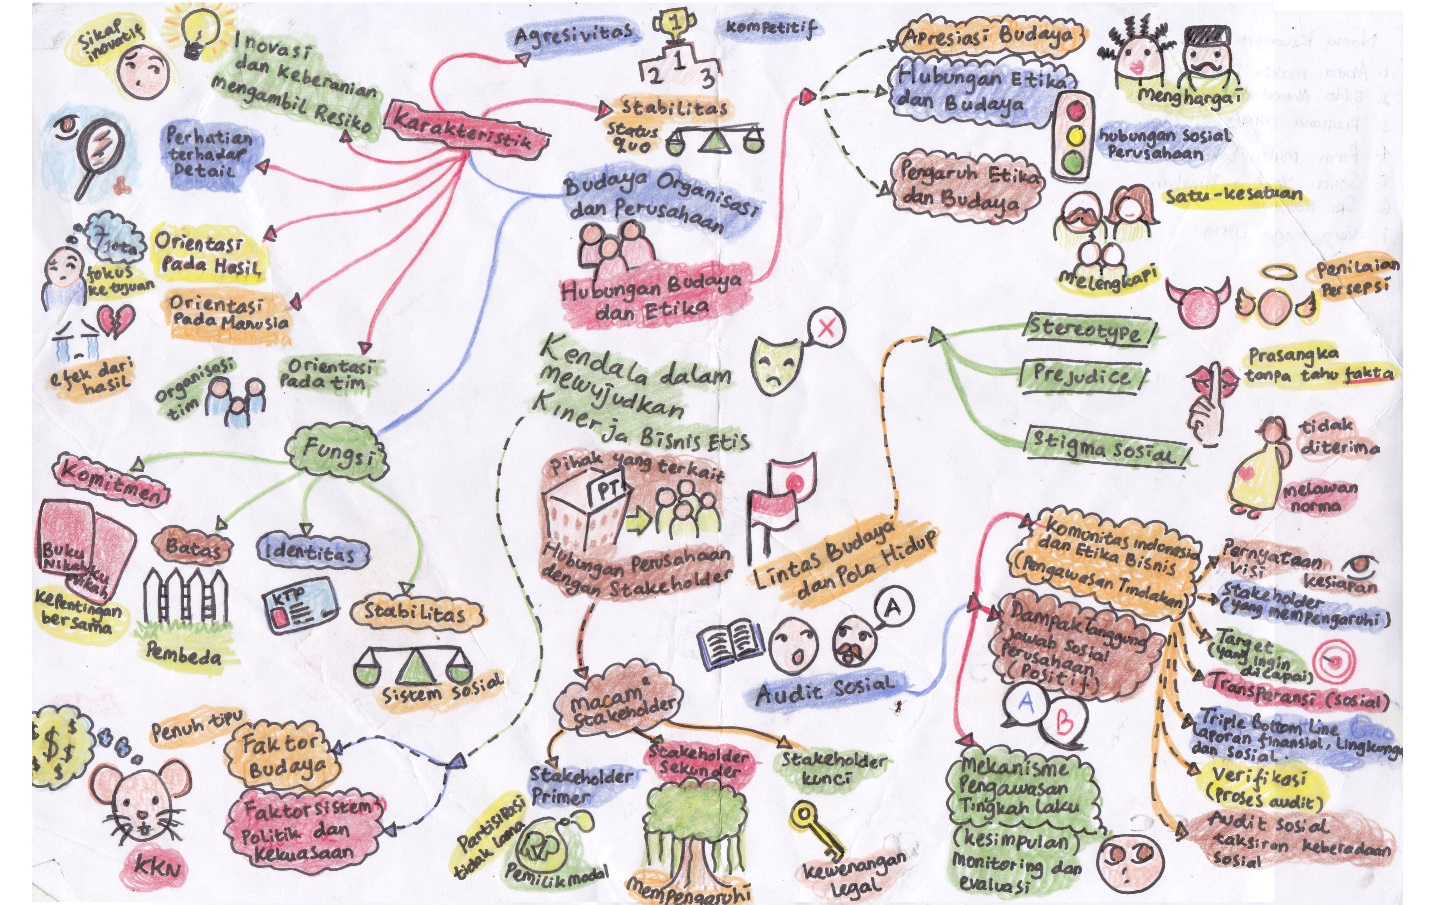 Sikap
inovatif
Inovasi
dan keberanian
mengambil Resiko
Agresivitas
1
1
2
3
kompetitif
Karakteristik
Stabilitas
Status
quo
Perhatian
terhadap
Detail
7
juta
fokus
ke tujuan
Orientasi
Pada Hasil
Orientasi
Pada Manusia
efek dari
hasil
Organisasi
tim
Orientasi
Pada tim
Budaya Organisasi
dan Perusahaan
Hubungan Budaya
dan Etika
Apresiasi Budaya
Hubungan Etika
dan Budaya
Pengaruh Etika
dan Budaya
menghargai
hubungan sosial
Perusahaan
Satu-kesatuan
melengkapi
Penilaian
Persepsi
Stereotype
Prejudice
Stigma Sosial
Prasangka
tanpa tahu fakta
tidak
diterima
melawan
norma
Fungsi
Komitmen
Batas
Identitas
Stabilitas
Buku
Nikah
Buku
Nikah
kepentingan
bersama
Pembeda
KTP
Sistem sosial
Kendala dalam
mewujudkan
Kinerja Bisnis Etis
X
Pihak yang terkait
PT
Hubungan Perusahaan
dengan Stakeholder
Lintas Budaya
dan Pola Hidup
A
Audit Sosial
Komunitas indonesia
dan Etika Bisnis
(Pengawasan Tindakan)
Dampak Tanggung
jawab sosial
Perusahaan
(Positif)
A
B
Mekanisme
Pengawasan
Tingkah laku
(kesimpulan)
monitoring dan
evaluasi
Pernyataan
visi
kesiaran
Stakeholder
(yang mempengaruhi)
Target
(yang ingin
dicapai)
Transparansi (sosial)
Triple Bottom Line
laporan finansial, Lingkungan
dan sosial.
Verifikasi
(Proses audit)
Audit sosial
taksiran keberadaan
sosial
$ $ $
Penuh tipu
Faktor
Budaya
Faktor sistem
Politik dan
Kekuasaan
KKN
Macam²
Stakeholder
Stakeholder
Primer
Stakeholder
Sekunder
Stakeholder
kunci
Partisipasi
tidak lama
RP
Pemilik modal
mempengaruhi
kewenangan
legal